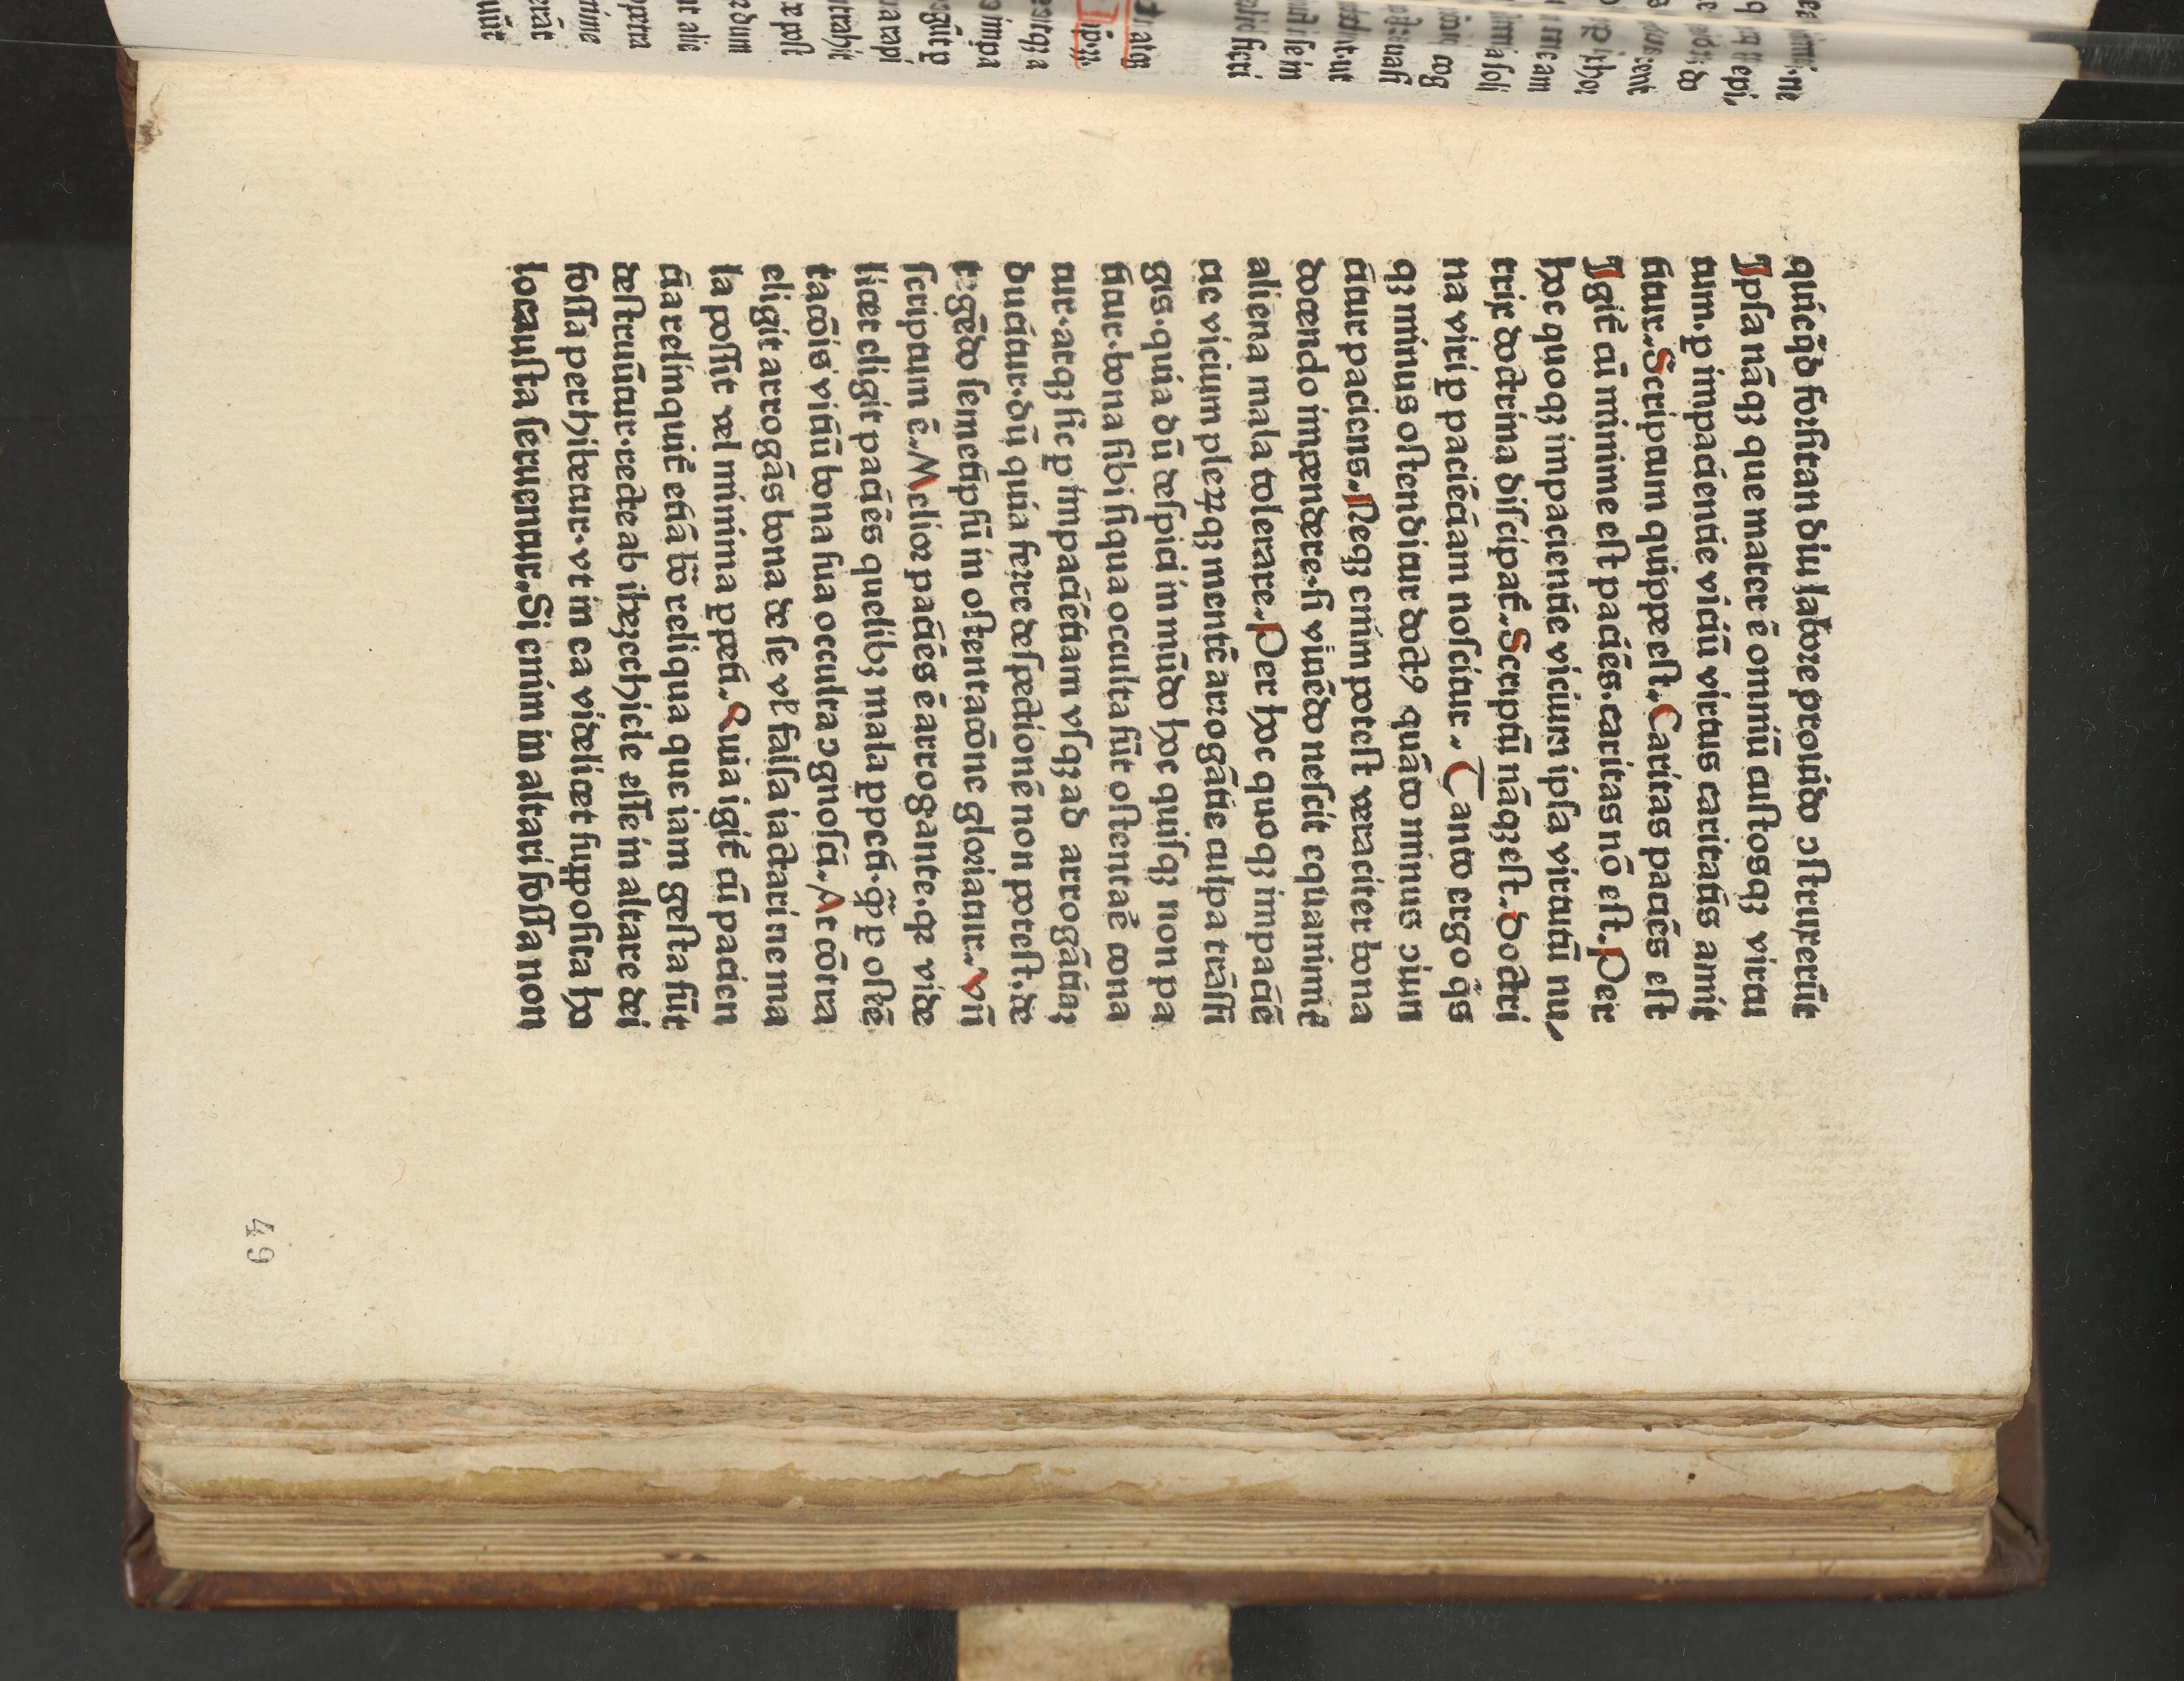 quicq̃d forsitan diu labore prouido ꝯstruxerūt
Ipsa nāqꝫ que mater ē omniū custosqꝫ virtu
tum. ꝑ impaciencie viciū virtus caritatis amit
titur. Scriptum quippe est. Caritas paciēs est
Igit᷑ cū minime est paciēs. caritas nō est. Per
hoc quoqꝫ impaciencie vicium ipsa virtutū nu⸗
trix doctrina discipat᷑. Scriptū nāqꝫ est. doctri
na viri ꝑ paciēciam noscitur. Tanto ergo q̇s
qꝫ minus ostenditur doctꝰ quāto minus ꝯuin
citur paciens. Neqꝫ enim potest veraciter bona
docendo impendere. si viuēdo nescit equanimit᷑
aliena mala tolerare. Per hoc quoqꝫ impaciē
cie vicium pleꝝqꝫ mentē arrogācie culpa trāsfi
git. quia dū despici in mūdo hoc quisqꝫ non pa
titur. bona sibi si qua occulta sūt ostentaē cona
tur. atqꝫ sic ꝑ impaciēciam vsqꝫ ad arrogāciaꝫ
ducitur. dū quia ferre despectionē non potest. de
tegēdo semetipsū in ostentacōne gloriatur. Vn̄
scriptum ē. Melior paciēs ē arrogante. qꝛ vide
licet eligit paciēs quelibꝫ mala ꝑpeti. q̈ꝫ ꝑ ostē
tacōis viciū bona sua occulta ꝯgnosci. At cōtra
eligit arrogās bona de se vl᷑ falsa iactari ne ma
la possit vel minima ꝑpeti. Quia igit᷑ cū pacien
cia relinquit᷑ eciā bo̅ reliqua que iam gesta sūt
destruūtur. recte ab ihezechiele esse in altare dei
fossa perhibetur. vt in ea videlicet supposita ho
locausta seruentur. Si enim in altari fossa non
49